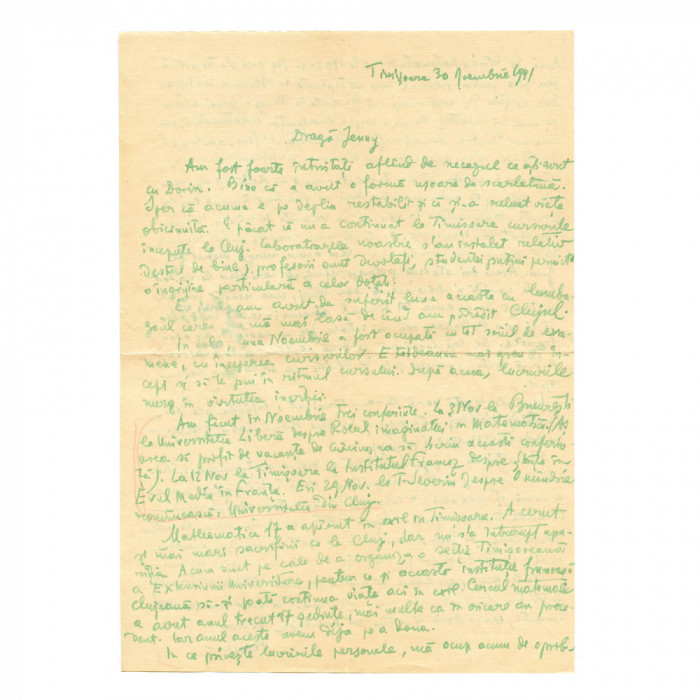 Timișoara 30 Noembrie 1941
Dragă Jenny
Am fost foarte întristați aflând de necazul ce ați avut
cu Dorin. Bine că a avut o formă ușoară de scarlatină.
Sper că acuma e pe deplin restabilit și că și-a reluat viața
obicinuită. E păcat că nu a continuat la Timișoara cursurile
începute la Cluj. Laboratoarele noastre s'au instalat relativ
destul de bine, profesorii sunt devotați, studenții puțini permit
o îngrijire particulară a celor dotați.
Eu am avut de suferit luna aceasta cu lumba-
goul care nu mă mai lasă de când am părăsit Clujul.
În colo, luna Noembrie a fost ocupată cu tot soiul de exa-
mene, cu începerea cursurilor. E totdeauna mai greu să în-
cepi și să te pui în ritmul cursului. După aceea, lucrurile
merg în virtutea inerției.
Am făcut în Noembrie trei conferințe. La 3 Nov la București
la Universitatea Liberă despre Rolul imaginației în Matematică (Aș
vrea să profit de vacanța de Crăciun ca să scriu această conferin-
ță). La 12 Nov la Timișoara la Institutul Francez despre știința în
Evul Mediu în Franța. Eri 29 Nov. la T-Severin despre O mândrie
românească: Universitatea din Cluj.
Mathematica 17 a apărut în exil în Timișoara. A cerut
și mai mari sacrificii ca la Cluj, dar nu s'a întrerupt apa-
riția. Acum sunt pe cale de a organiza o secție Timișoreană
a Extensiunii Universitare, pentru ca și această instituție
clujeană să-și poată continua viața aci în exil. Cercul matematic
a avut anul trecut 17 ședințe, mai multe ca în oricare an prece-
dent. Iar anul acesta avem deja pe a doua.
În ce privește lucrările personale, mă ocup acum de